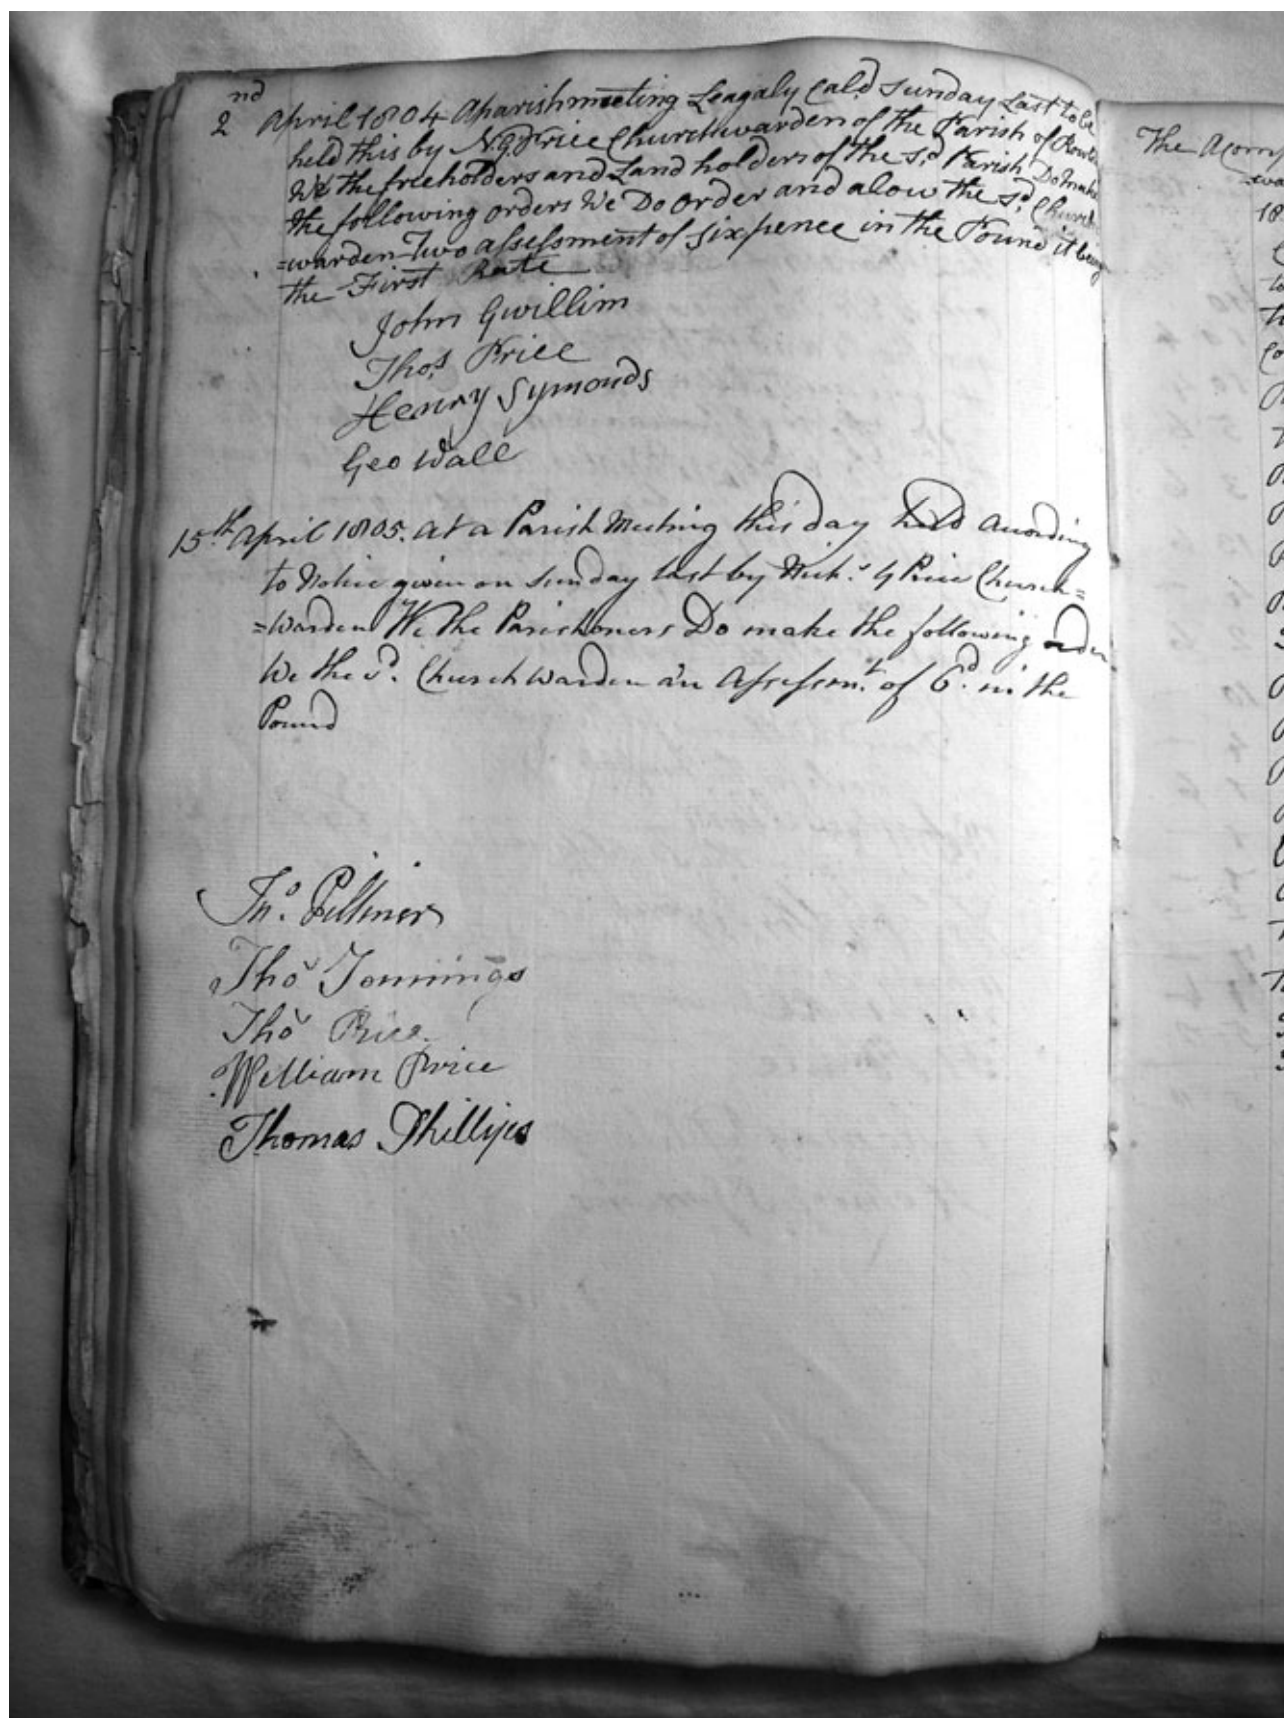 2nd April 1804 A parish meeting Leagaly Cal.d Sunday Last to be
held this by N.G. Price Churchwarden of the Parish of
We the freeholders and Land holders of the s.d Parish Do make
the following orders We Do order and alow the s.d Church
=warden Two assessment of sixpence in the Pound it being
the First Rate
John Gwillim
Tho.s Price
Henry Symonds
Geo Wall
15th April 1805. At a Parish Meeting this day held according
to Notice given on Sunday last by Nich.s G Price Church=
=warden We the Parishoners Do make the following order
We the s.d. Church Warden an Assessm.t of 6.d in the
Pound
Tho Jennings
Tho Price
William Price
Thomas Phillips
The
18